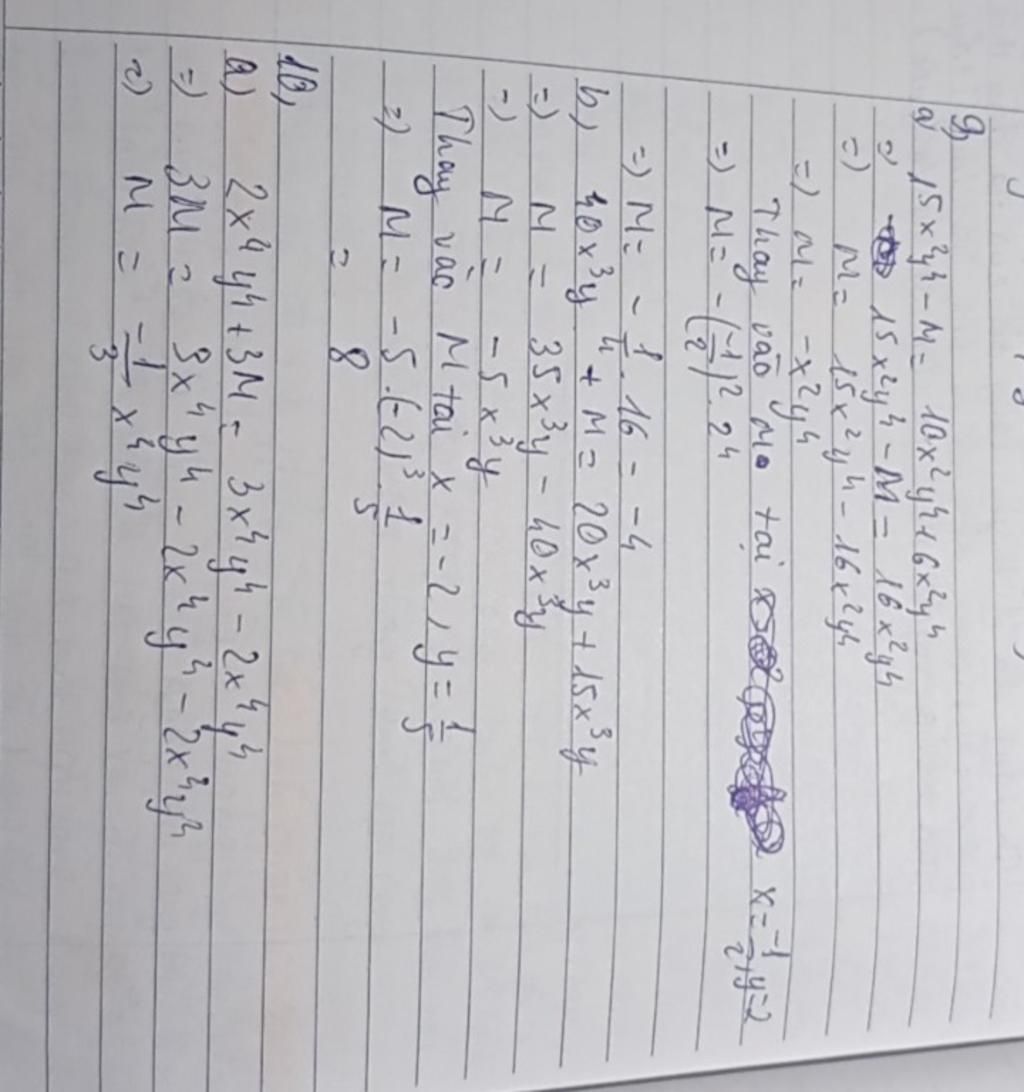 9,
a) 15x²y⁴ - M = 10x²y⁴ + 6x²y⁴
=) 15x²y⁴ - M = 16x²y⁴
=) M = 15x²y⁴ - 16x²y⁴
=) M = -x²y⁴
Thay vào M tại x = -1/2, y = 2
=) M = -(-1/2)². 2⁴
=) M = - 1/4 . 16 = -4
b) 40x³y + M = 20x³y + 15x³y
=) M = 35x³y - 40x³y
=) M = -5x³y
Thay vào M tại x = -2, y = 1/5
=) M = -5.(-2)³. 1/5
= 8
10,
a) 2x⁴y⁴ + 3M = 3x⁴y⁴ - 2x⁴y⁴
=) 3M = 3x⁴y⁴ - 2x⁴y⁴ - 2x⁴y⁴
=) M = -1/3 x⁴y⁴